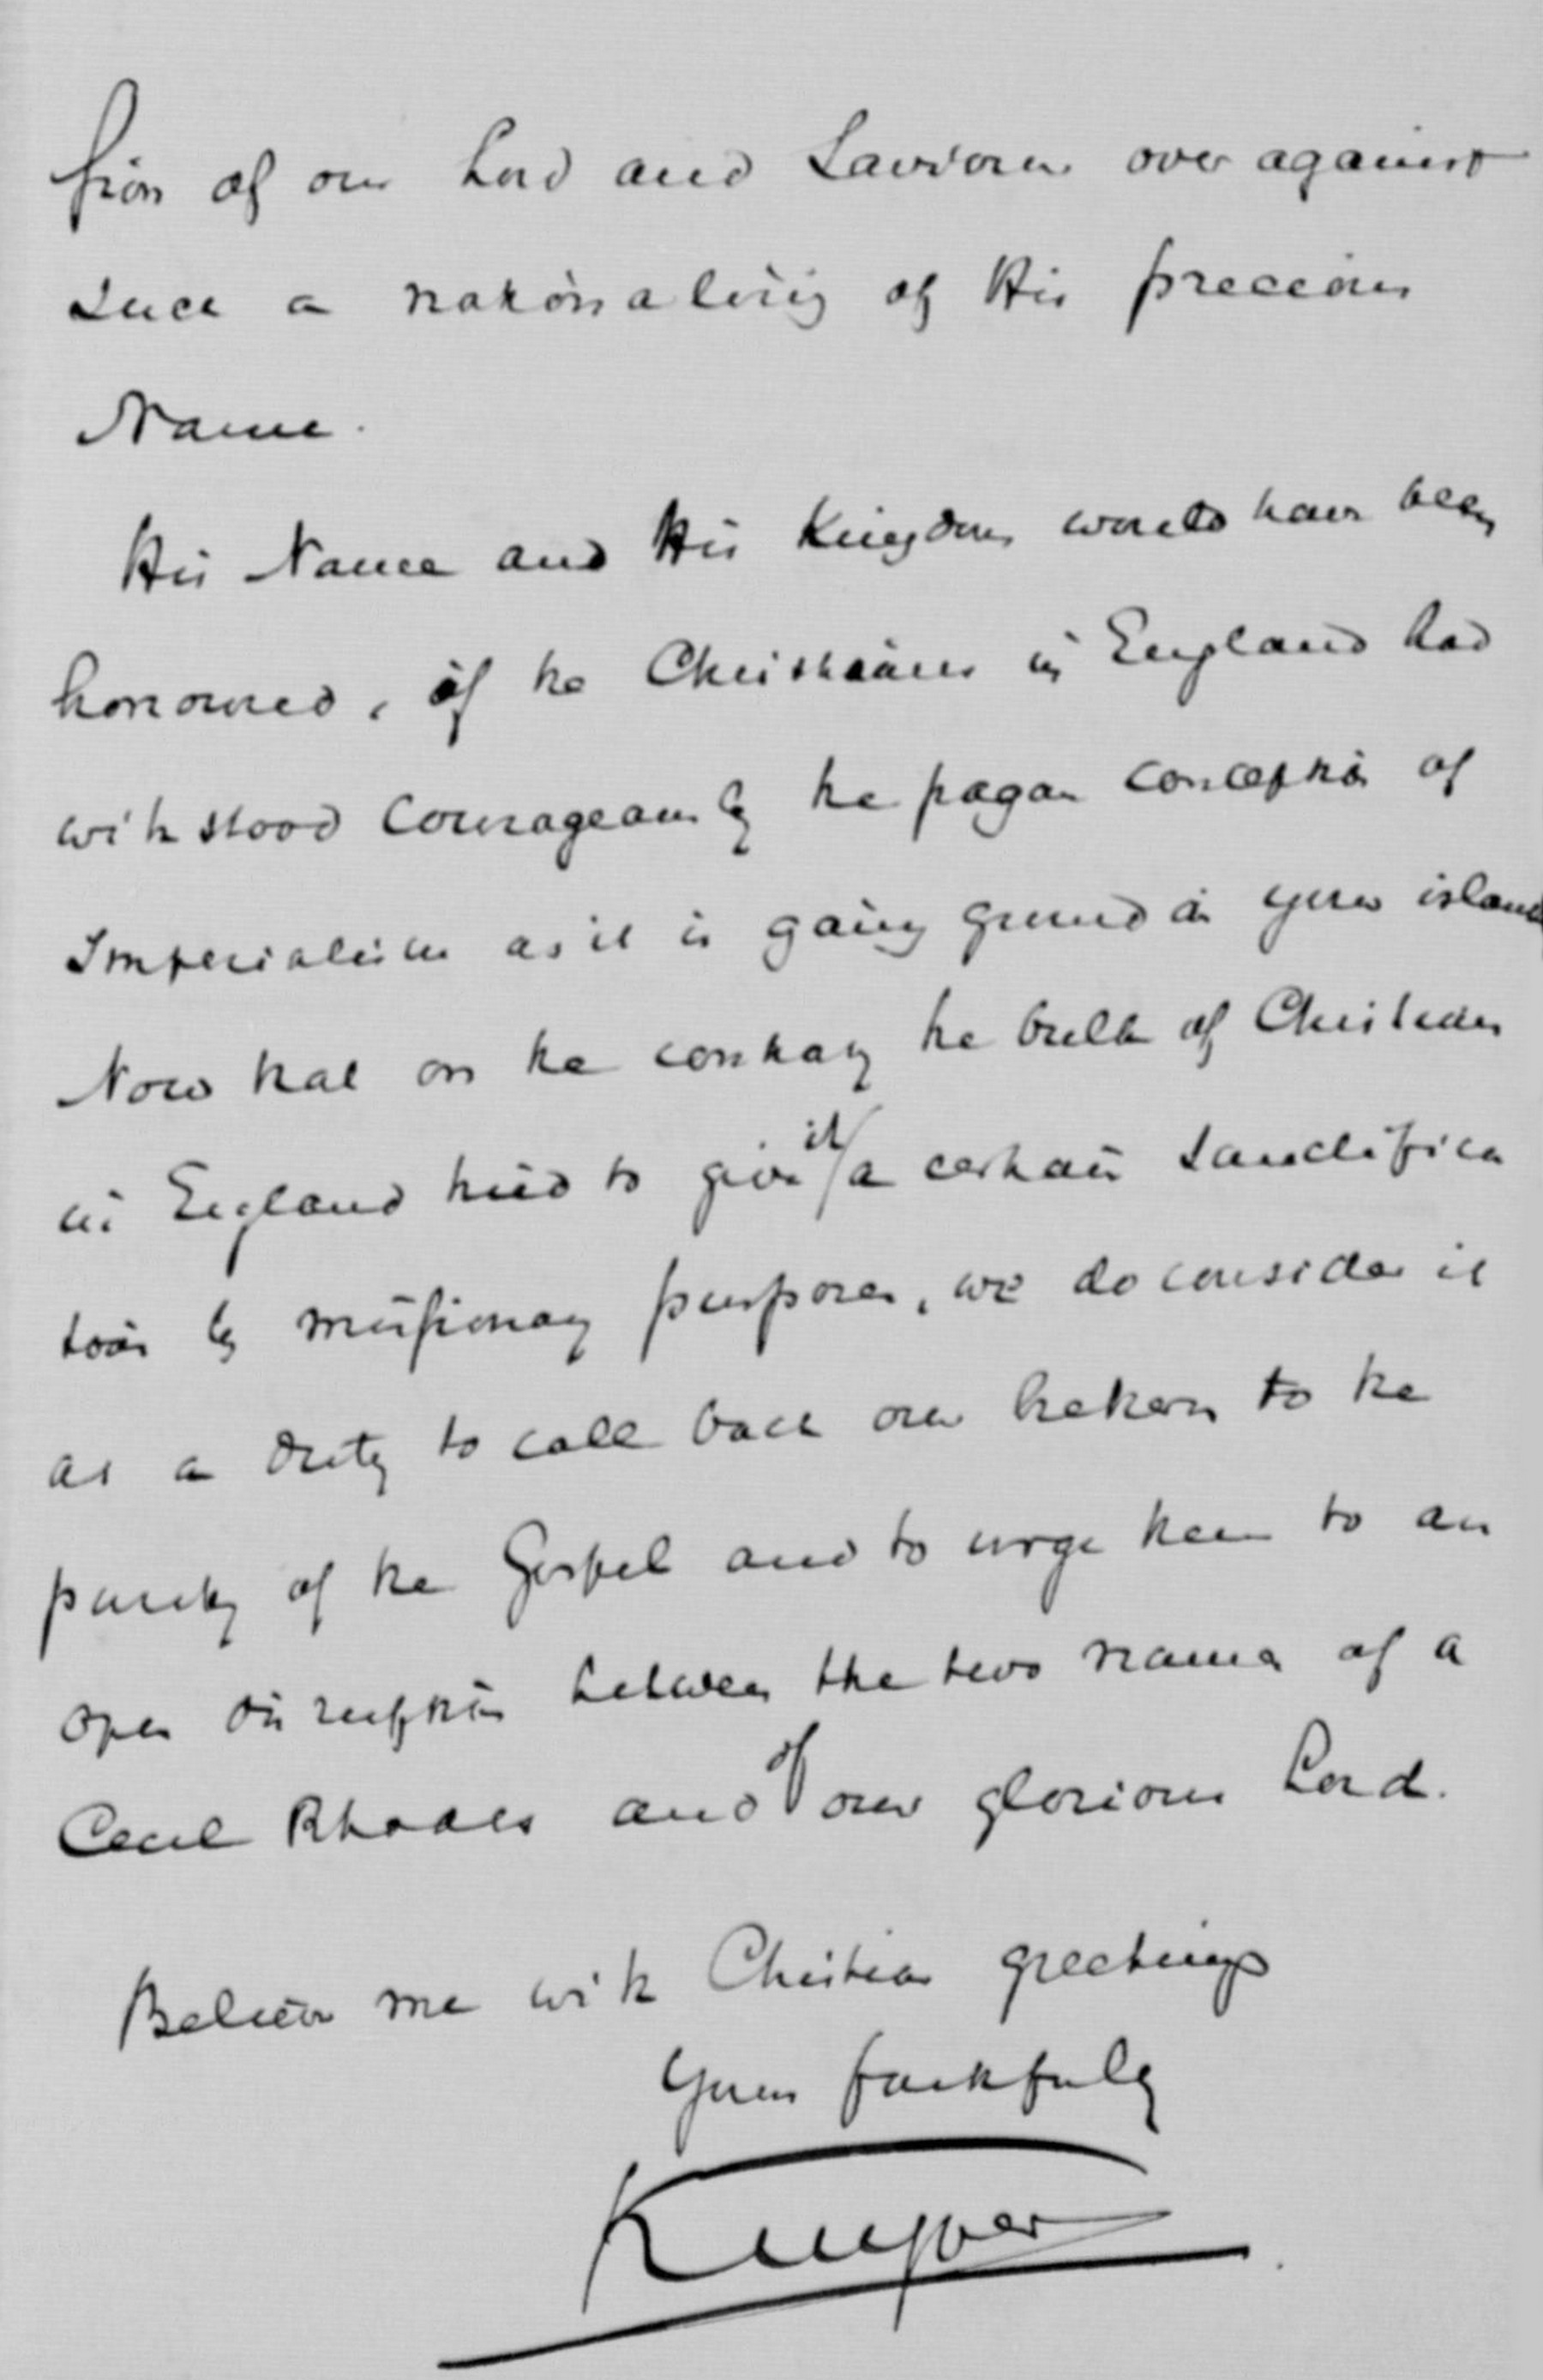 sion of our Lord and Saviour over against
such a nationalising of His precious
Name.
His Name and His Kingdom would have been
honoured, if the Christians in England had
withstood courageously the pagan conception of
Imperialism as it is gaing ground in your island
Now that on the contrary the bulk of Christians
in England tried to give it a certain sanctifica
tion by missionary purposes, we do consider it
as a duty to call back our brethern to the
purity of the Gospel and to urge them to an
open between the two names of a
Cecil Rhodes and of our glorious Lord.
Believe me with Christian greetings
Yours faithfully
Kuyper